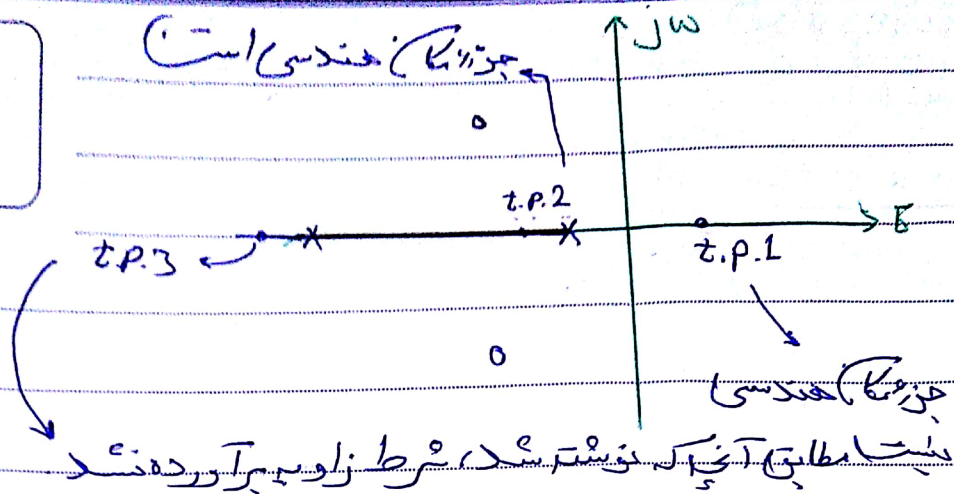 جزء مکان هندسی است
jω
t.p.2
t.p.3
t.p.1
جزء مکان هندسی
نیست مطابق آنچه که نوشته شد، شرط زاویه برآورده نشد